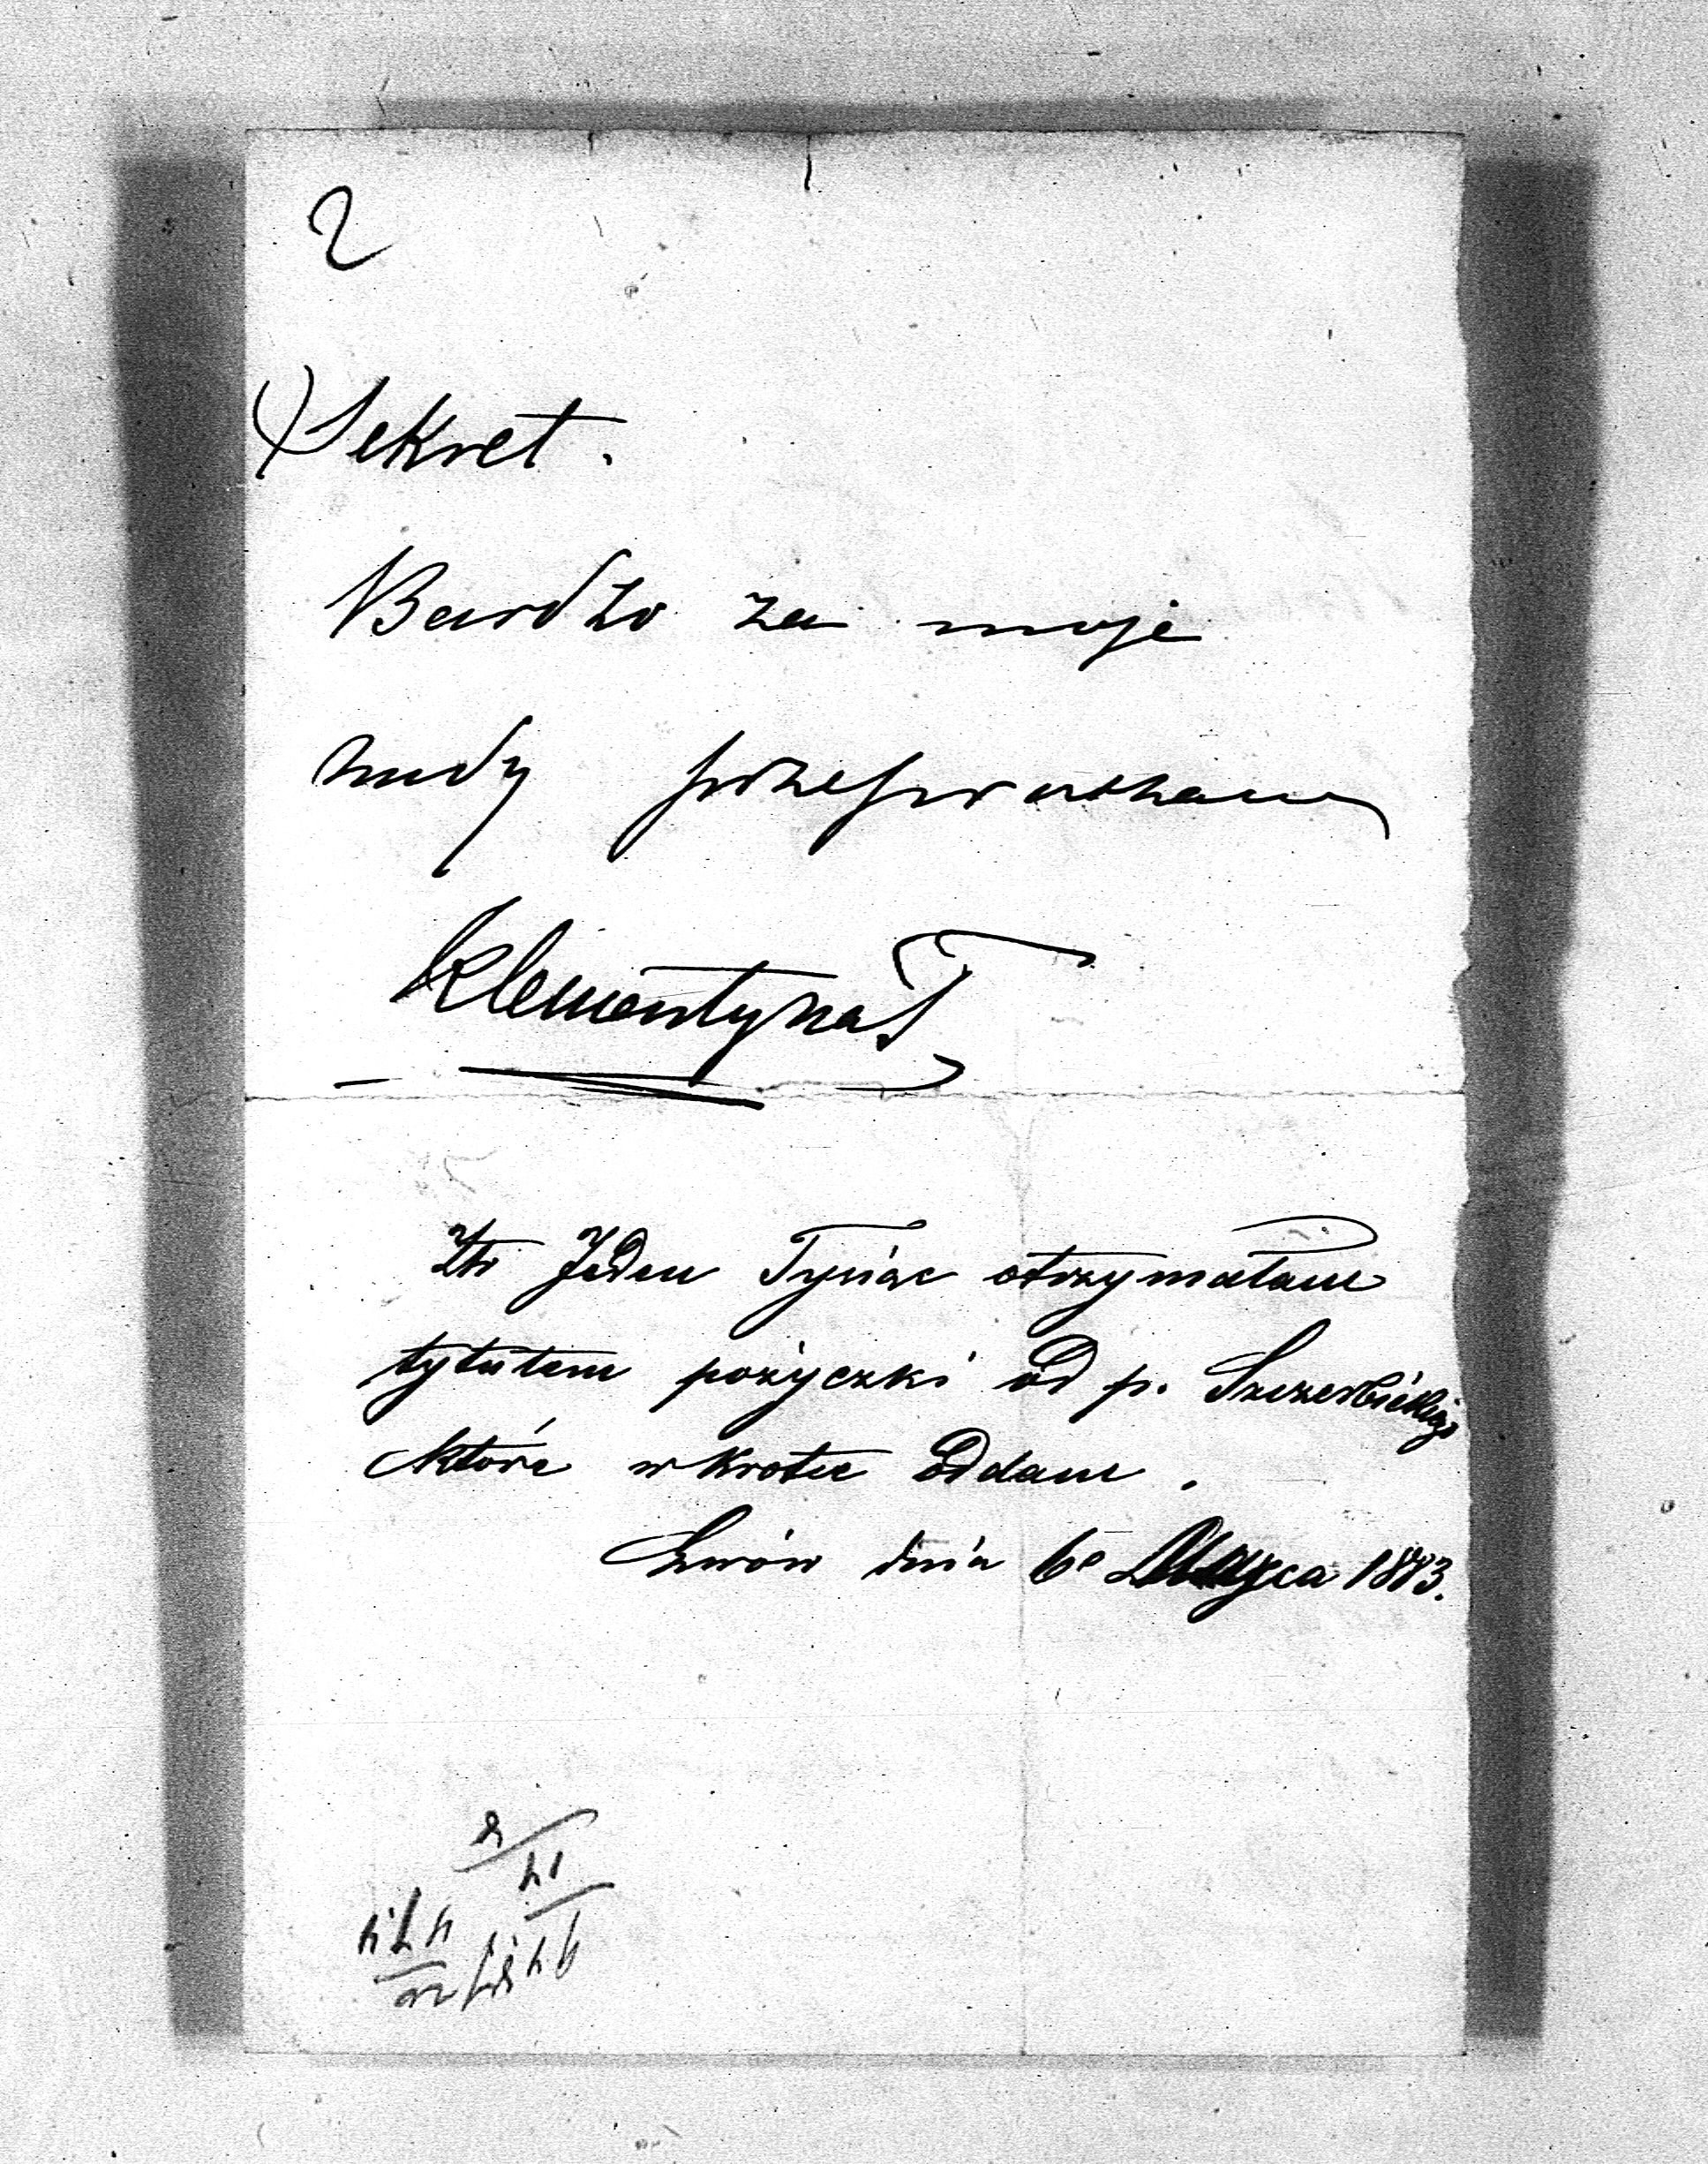 2
Sekret.
Bardzo za moje
nudy przepraszam
Klementyna T
Złr Jeden Tysiąc otrzymałam
tytułem pożyczki od p. Szczerbickiego
które wkrótce oddam.
Lwów dnia 6º Marca 1883.